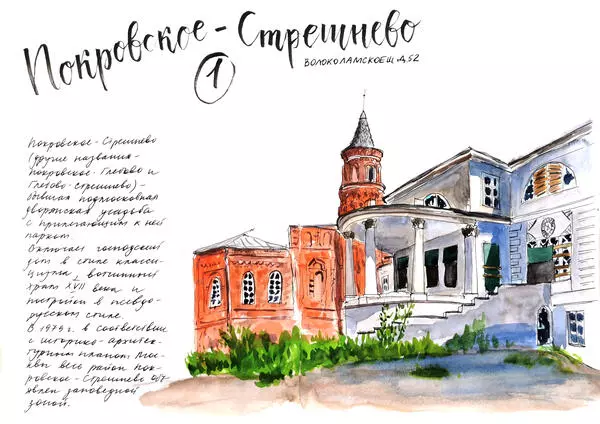 Покровское-Стрешнево
1
Волоколамское ш. д.52
Покровское-Стрешнево
(другие названия-
Покровское-Глебово и
Глебово-Стрешнево)-
бывшая подмосковная
дворянская усадьба
с прилегающим к ней
парком.
Включает господский
дом в стиле класси-
цизма, вотчинный
храм XVII века и
постройки в псевдо-
русском стиле.
В 1979 г. в соответствие
с историко-архитек-
турным планом Мос-
квы весь район Пок-
ровское-Стрешнево объ-
явлен заповедной
зоной.